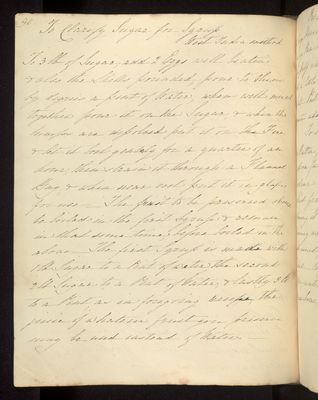 To Clarify Sugar for Syrup
West India method
To 3 lb of Sugar, add 2 Eggs well beaten
& also the Shells pounded, pour to them
by degrees a pint of Water, when well mixed
together pour it on the Sugar, & when the
are dissolved put it on the Fire
& let it boil gently for a quarter of an
hour, then strain it through a Flannel
Bag & when near cool put it in glass
for use — The fruit to be preserved
be boiled in the first Syrup & remain
in that some time, before boiled in the
above — The first Syrup is made with
1 lb Sugar to a Pint of water, the second
2 lb Sugar to a Pint of Water, & lastly 3 lb
to a Pint as in foregoing receipt the
juice of whatever fruit you preserve
may be used instead of Water —